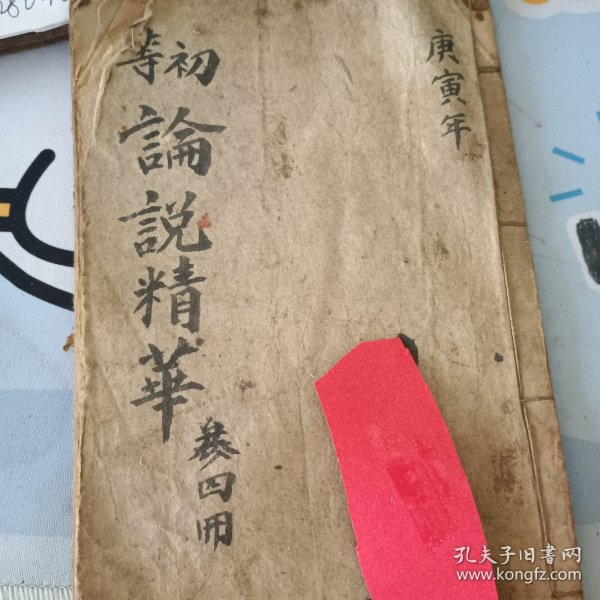 庚寅年
初等
論説精華
叅四冊
孔夫子旧書网
www.kongfz.com